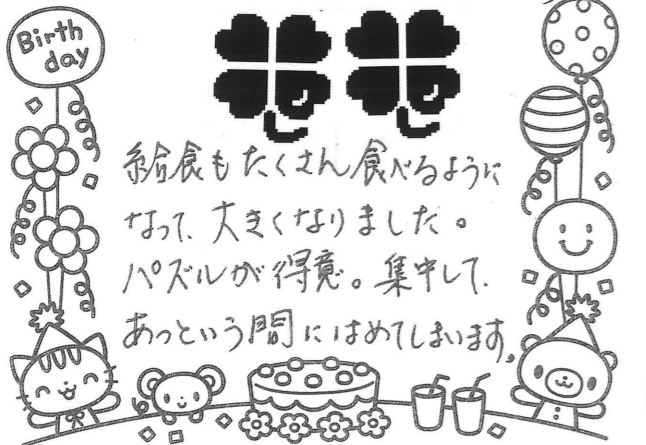 Birth
day
給食もたくさん食べるように
なって、大きくなりました。
パズルが得意。集中して、
あっという間にはめてしまいます。